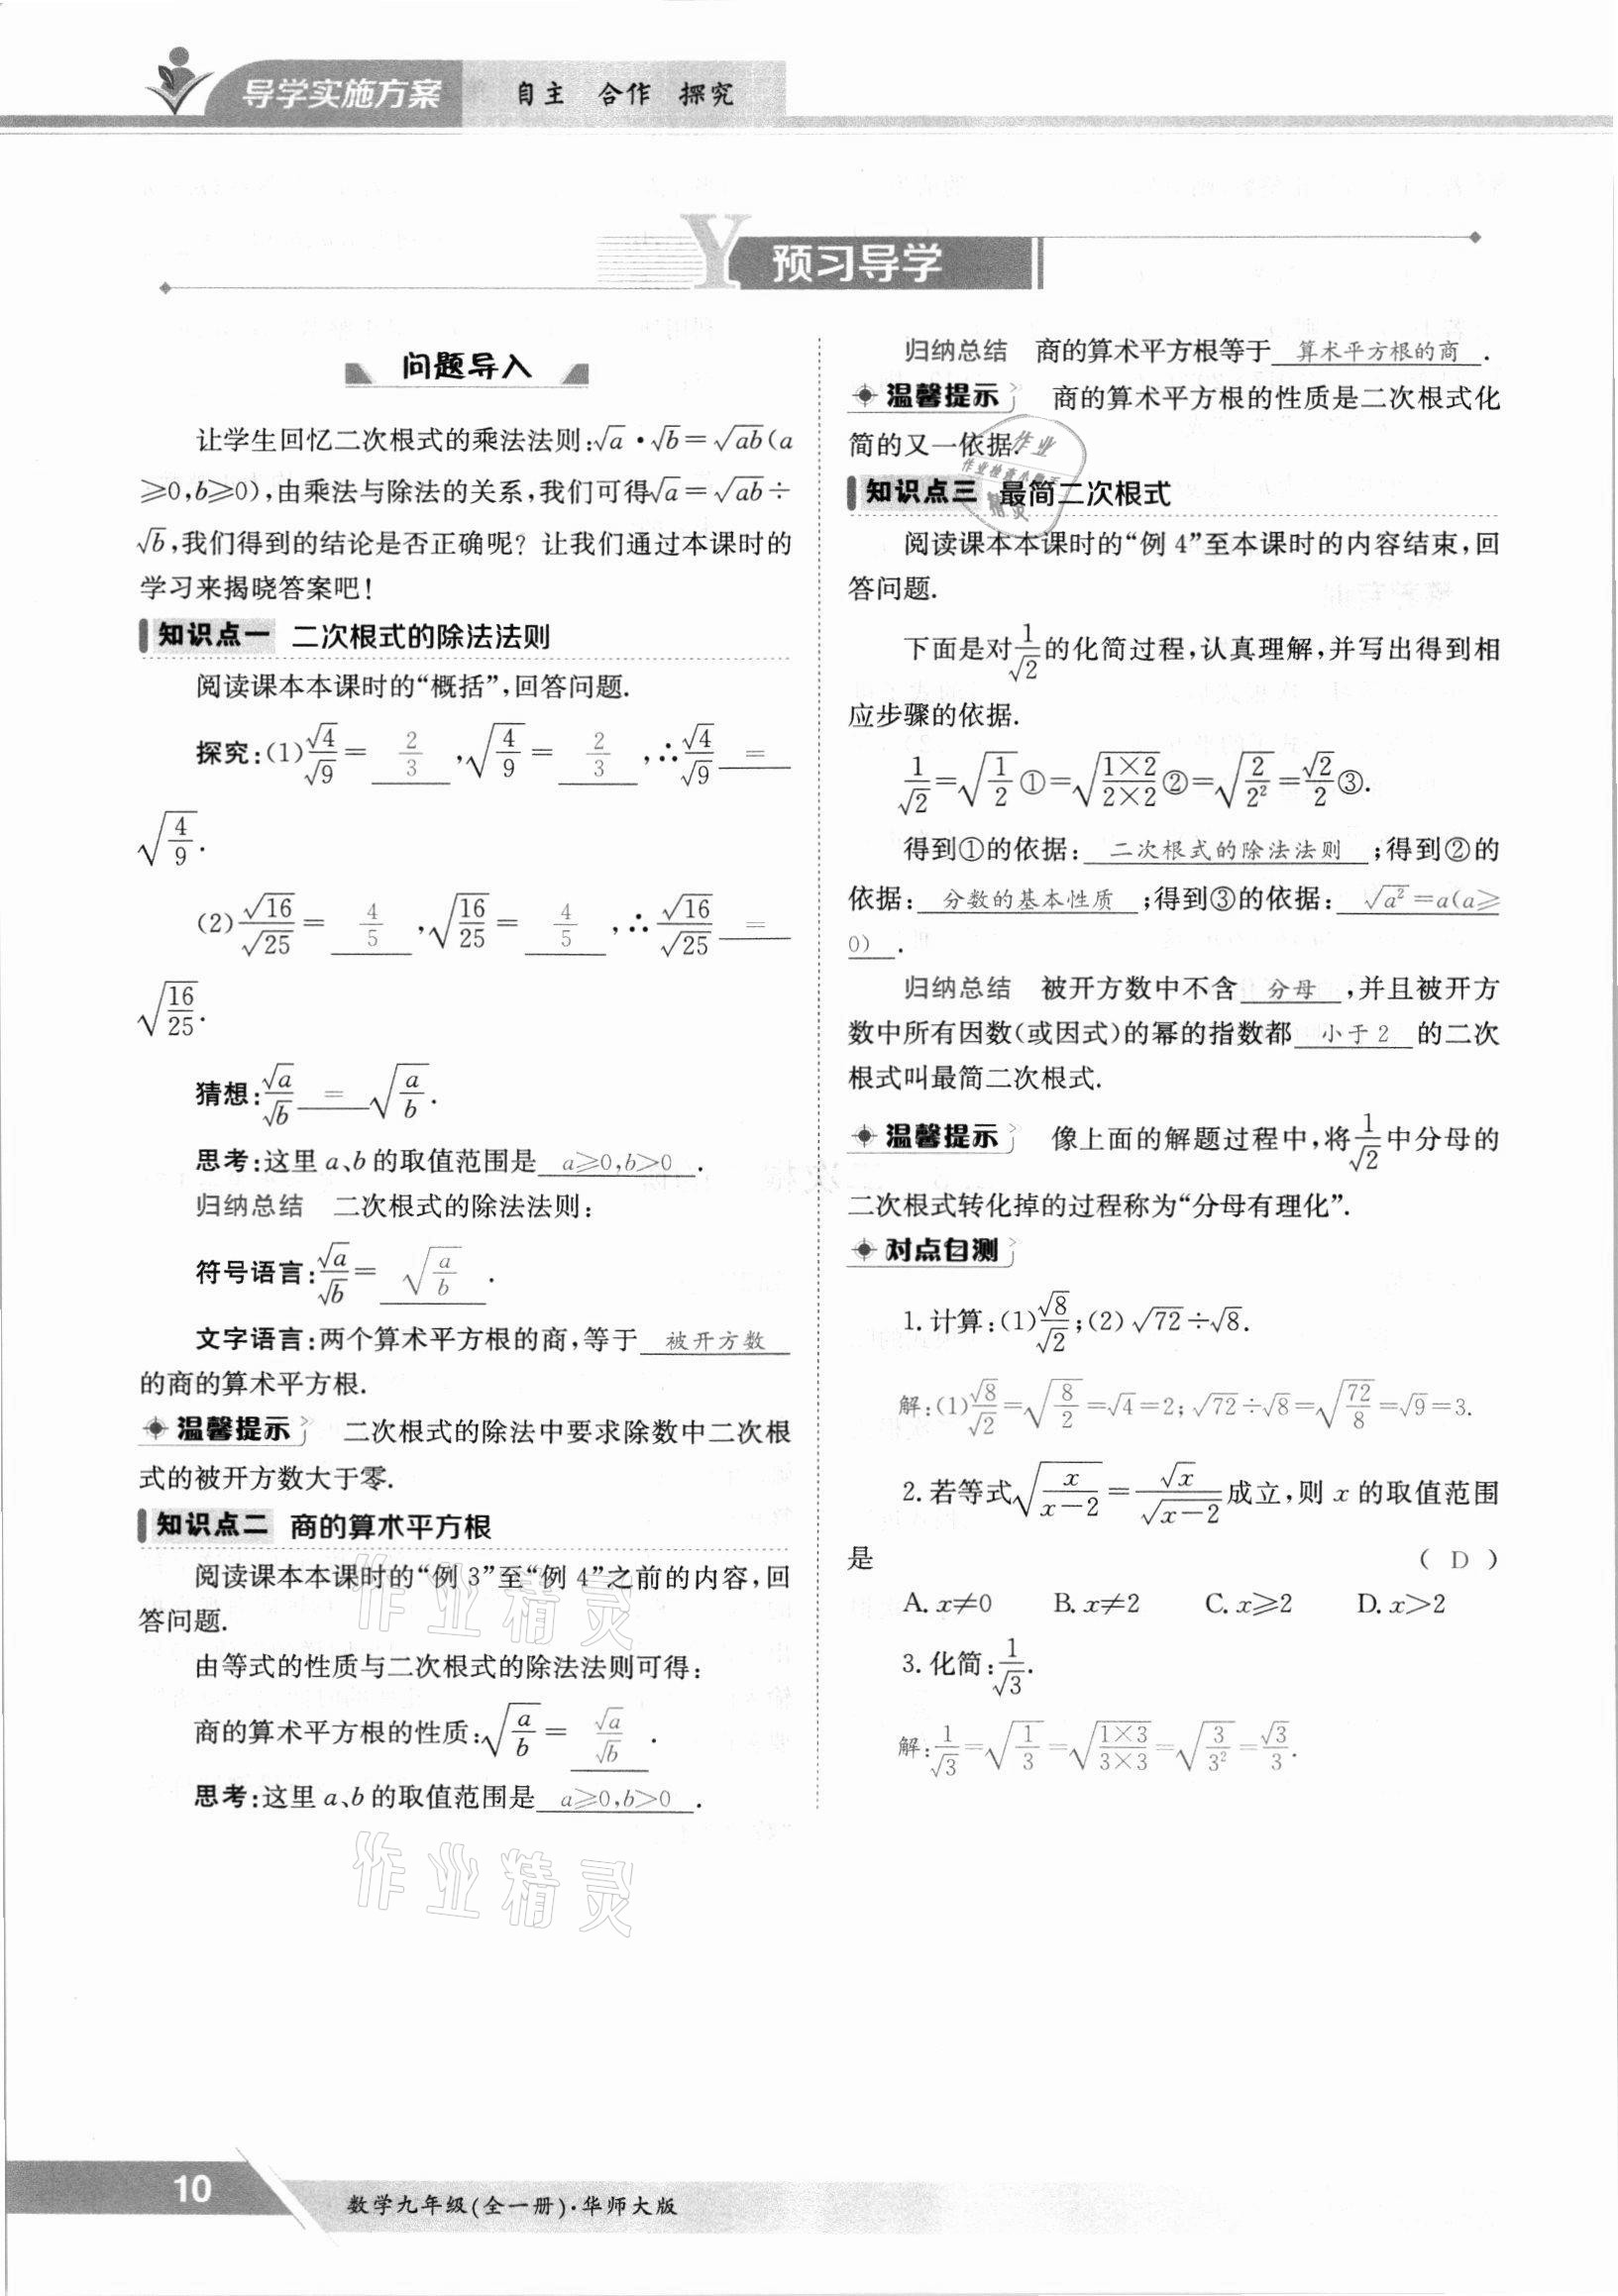 导学实施方案 自主 合作 探究
Y 预习导学
问题导入
让学生回忆二次根式的乘法法则:√a·√b=√ab(a
≥0,b≥0),由乘法与除法的关系,我们可得√a=√ab÷
√b,我们得到的结论是否正确呢?让我们通过本课时的
学习来揭晓答案吧!
知识点一 二次根式的除法法则
阅读课本本课时的“概括”,回答问题.
探究:(1)√4/√9=2/3,√(4/9)=2/3,∴√4/√9 =
√(4/9).
(2)√16/√25=4/5,√(16/25)=4/5,∴√16/√25 =
√(16/25).
猜想:√a/√b = √(a/b).
思考:这里a、b的取值范围是 a≥0,b>0 .
归纳总结 二次根式的除法法则:
符号语言:√a/√b= √(a/b) .
文字语言:两个算术平方根的商,等于 被开方数
的商的算术平方根.
温馨提示 二次根式的除法中要求除数中二次根
式的被开方数大于零.
知识点二 商的算术平方根
阅读课本本课时的“例3”至“例4”之前的内容,回
答问题.
由等式的性质与二次根式的除法法则可得:
商的算术平方根的性质:√(a/b)= √a/√b .
思考:这里a、b的取值范围是 a≥0,b>0 .
归纳总结 商的算术平方根等于 算术平方根的商 .
温馨提示 商的算术平方根的性质是二次根式化
简的又一依据.
知识点三 最简二次根式
阅读课本本课时的“例4”至本课时的内容结束,回
答问题.
下面是对1/√2的化简过程,认真理解,并写出得到相
应步骤的依据.
1/√2=√(1/2)①=√((1×2)/(2×2))②=√(2/2²)=√2/2③.
得到①的依据: 二次根式的除法法则 ;得到②的
依据: 分数的基本性质 ;得到③的依据: √a²=a(a≥
0) .
归纳总结 被开方数中不含 分母 ,并且被开方
数中所有因数(或因式)的幂的指数都 小于2 的二次
根式叫最简二次根式.
温馨提示 像上面的解题过程中,将1/√2中分母的
二次根式转化掉的过程称为“分母有理化”.
对点自测
1.计算:(1)√8/√2;(2)√72÷√8.
解:(1)√8/√2=√(8/2)=√4=2;√72÷√8=√(72/8)=√9=3.
2.若等式√(x/(x-2))=√x/√(x-2)成立,则x的取值范围
是 ( D )
A. x≠0 B. x≠2 C. x≥2 D. x>2
3.化简:1/√3.
解:1/√3=√(1/3)=√((1×3)/(3×3))=√(3/3²)=√3/3.
作业精灵
作业精灵
作业
作业检查小帮手
精灵
10 数学九年级(全一册)·华师大版